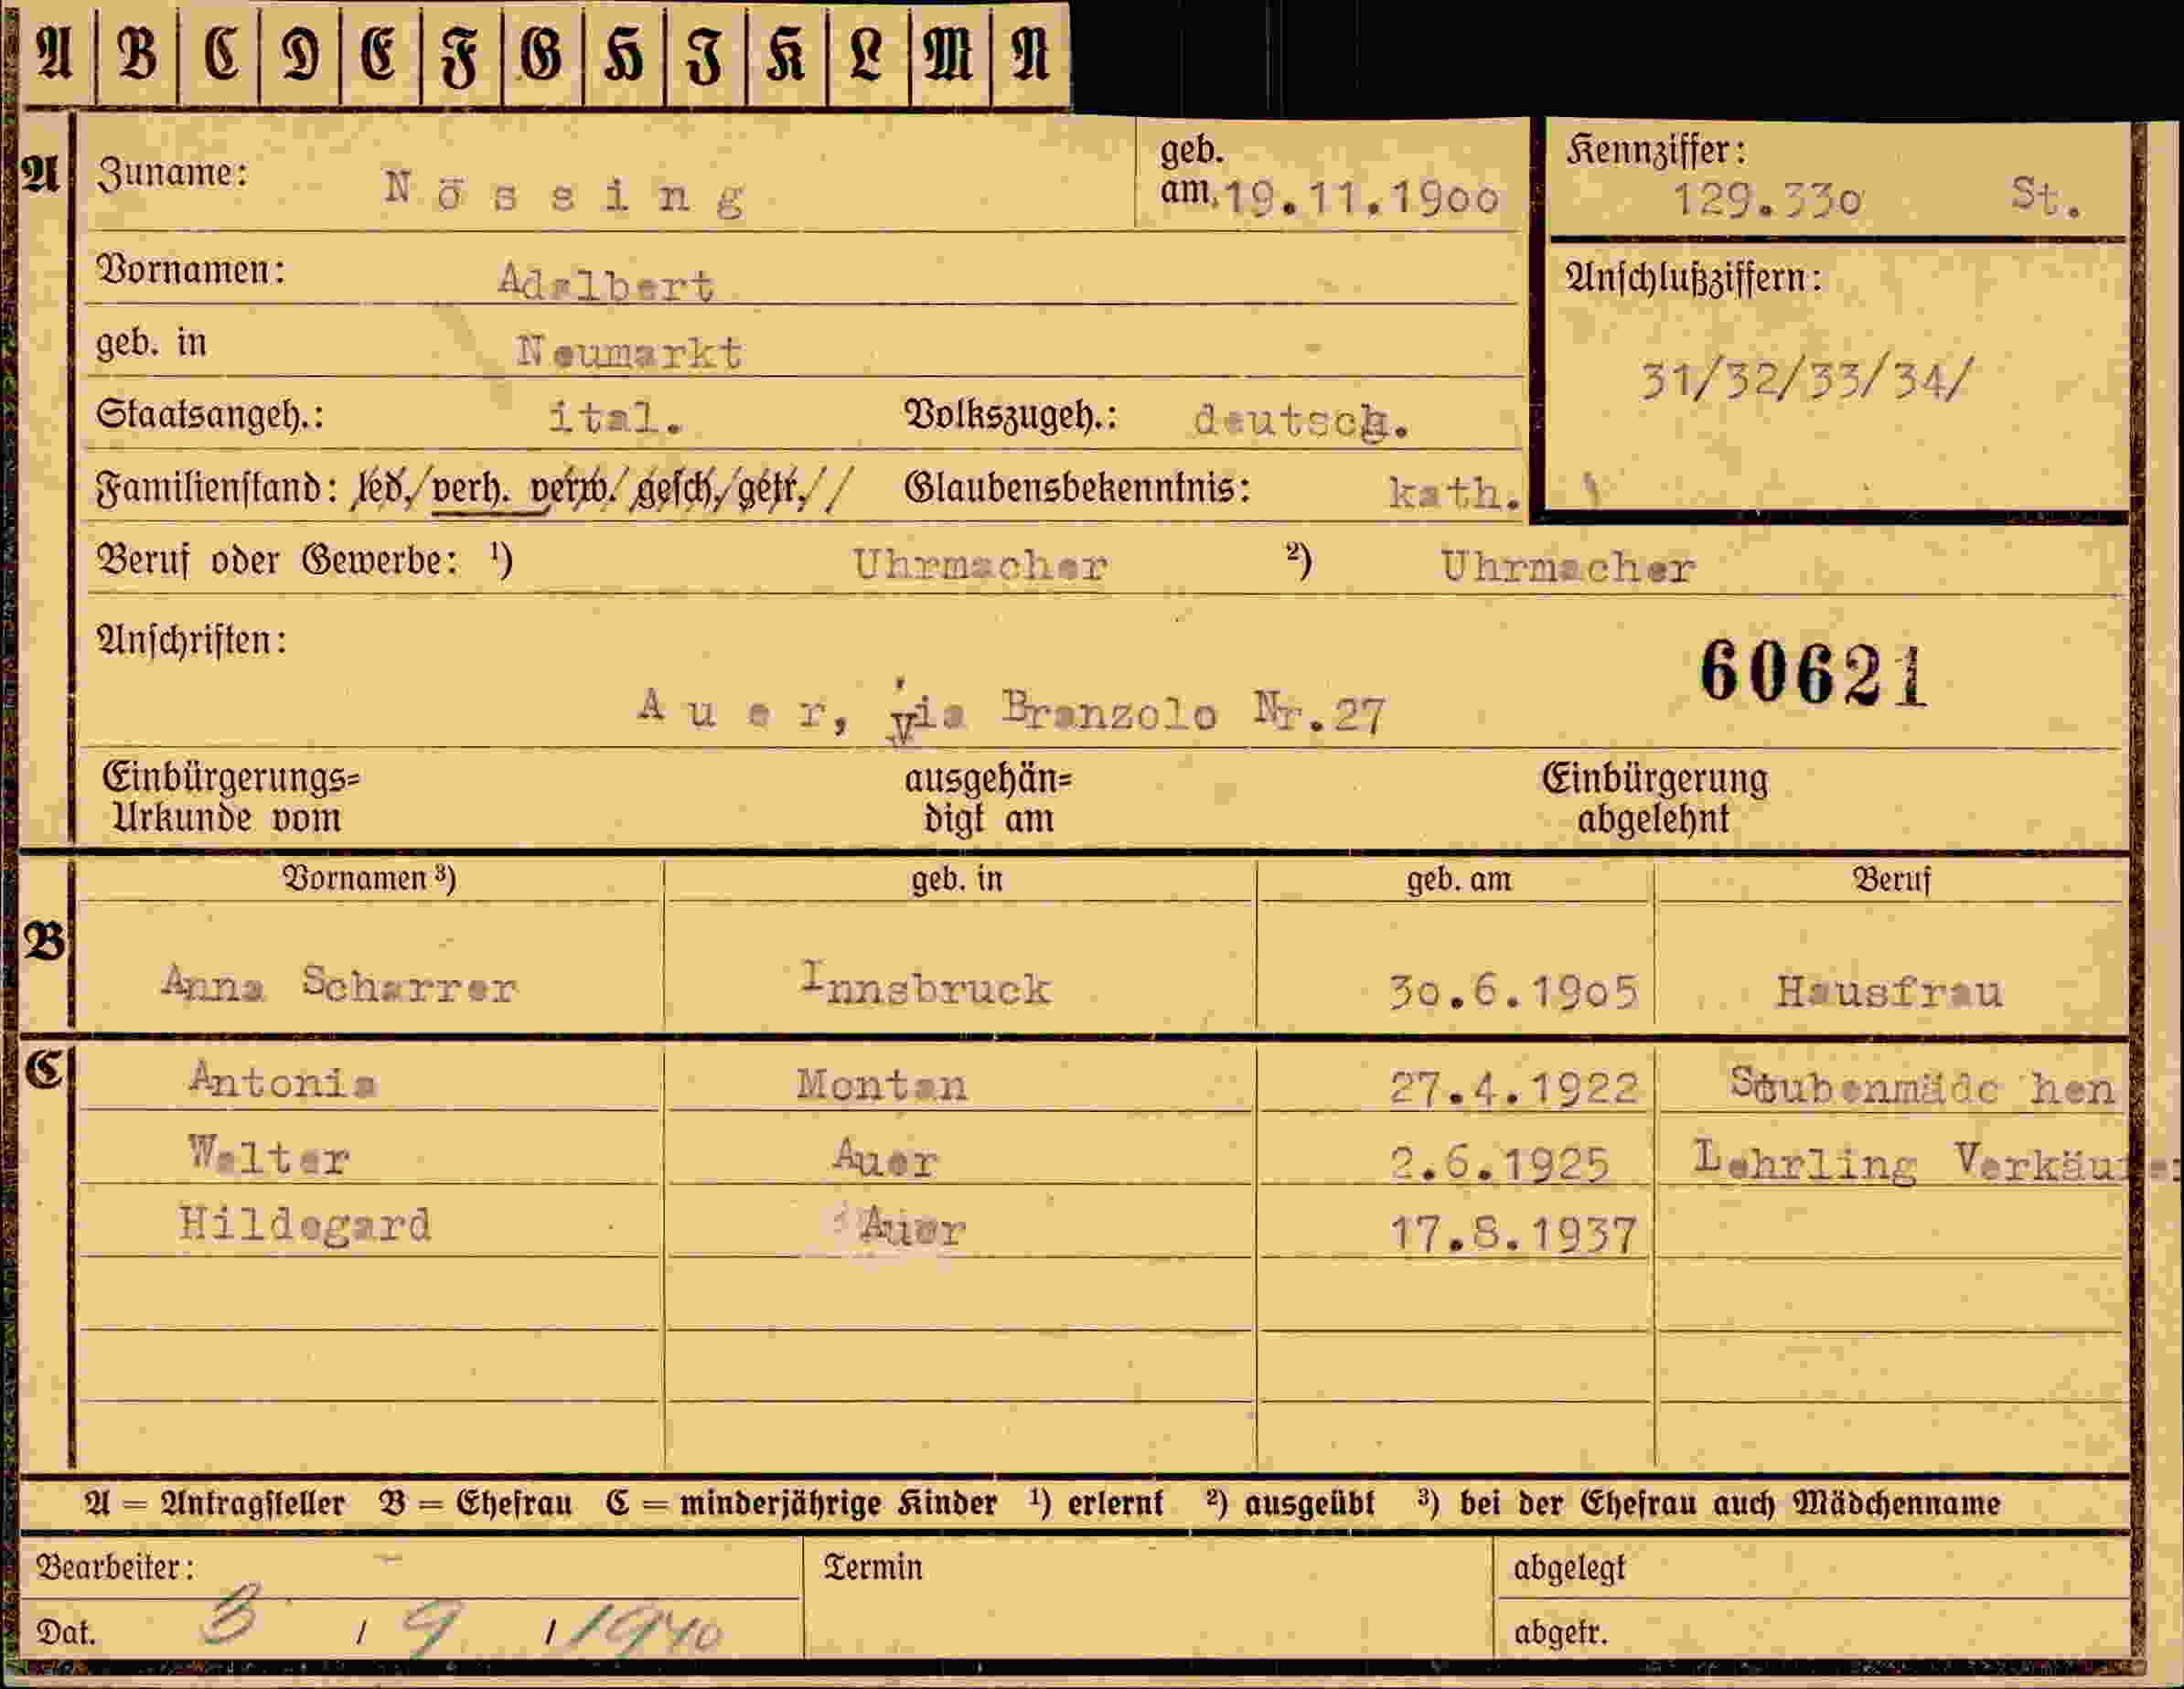 A B C D E F G H I K L M N
A Zuname: Nössing geb. am 19.11.1900 Kennziffer: 129.330 St.
Vornamen: Adalbert Anschlußziffern:
geb. in Neumarkt 31/32/33/34/
Staatsangeh.: ital. Volkszugeh.: deutsch.
Familienstand: led. verh. verw. gesch. getr. Glaubensbekenntnis: kath.
Beruf oder Gewerbe: ¹) Uhrmacher ²) Uhrmacher
Anschriften: 60621
Auer, via Branzolo Nr.27
Einbürgerungs= ausgehän= Einbürgerung
Urkunde vom digt am abgelehnt
Vornamen ³) geb. in geb. am Beruf
B Anna Scharrer Innsbruck 30.6.1905 Hausfrau
C Antonia Montan 27.4.1922 Stubenmädc hen
Walter Auer 2.6.1925 Lehrling Verkäufer
Hildegard Auer 17.8.1937
A = Antragsteller B = Ehefrau C = minderjährige Kinder ¹) erlernt ²) ausgeübt ³) bei der Ehefrau auch Mädchenname
Bearbeiter: Termin abgelegt
Dat. 3 / 9 / 1940 abgetr.